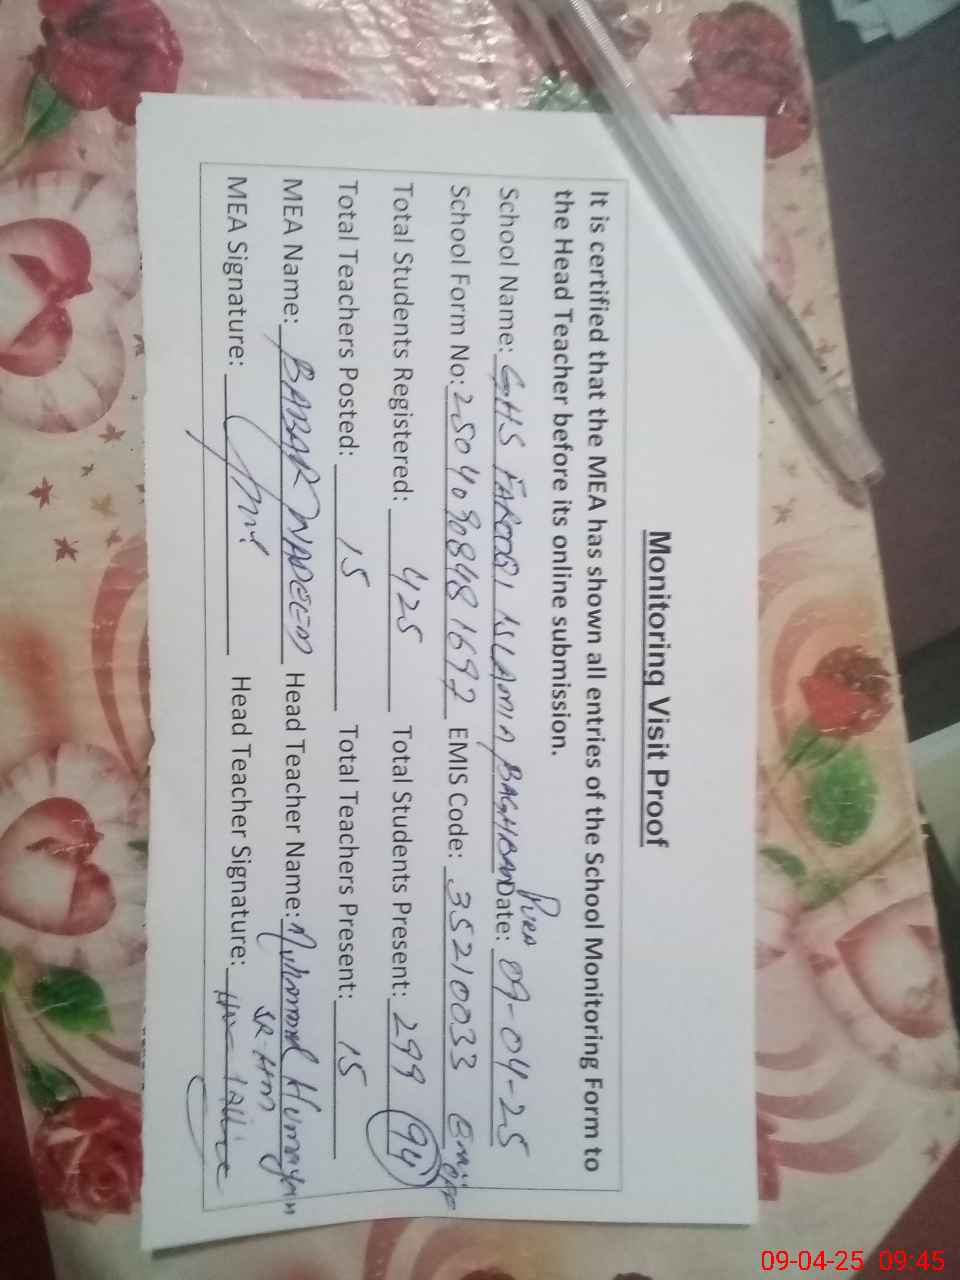 Monitoring Visit Proof
It is certified that the MEA has shown all entries of the School Monitoring Form to
the Head Teacher before its online submission.
School Name: GHS FAROOQI ISLAMIA BAGHBANPURA Date: 09-04-25
School Form No: 2504090848 1697 EMIS Code: 35210033
Total Students Registered: 425 Total Students Present: 299 (94)
Total Teachers Posted: 15 Total Teachers Present: 15
MEA Name: BABAR NADEEM Head Teacher Name: Muhammad Humayun
SR-HM
MEA Signature: Head Teacher Signature:
09-04-25 09:45